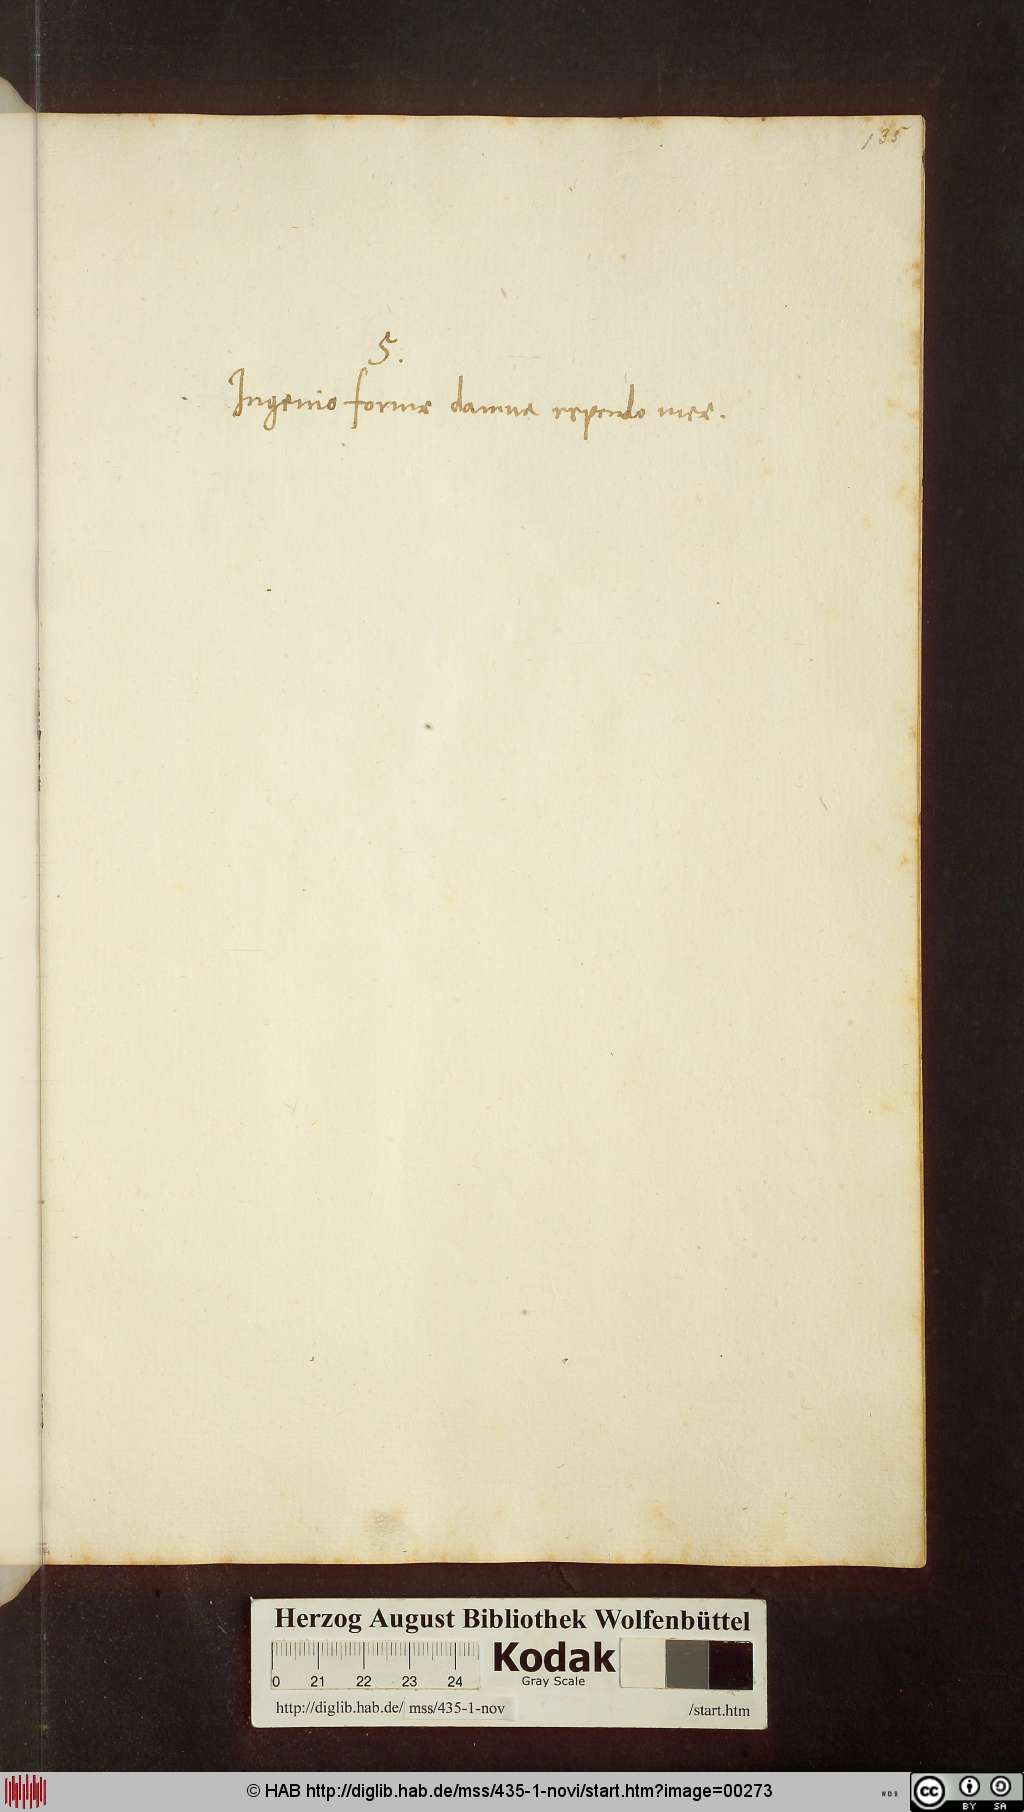 135
5.
Ingenio formæ damna rependo meæ.
Herzog August Bibliothek Wolfenbüttel
Kodak
Gray Scale
0 21 22 23 24
http://diglib.hab.de/ mss/435-1-nov /start.htm
© HAB http://diglib.hab.de/mss/435-1-novi/start.htm?image=00273
WDB
cc BY SA